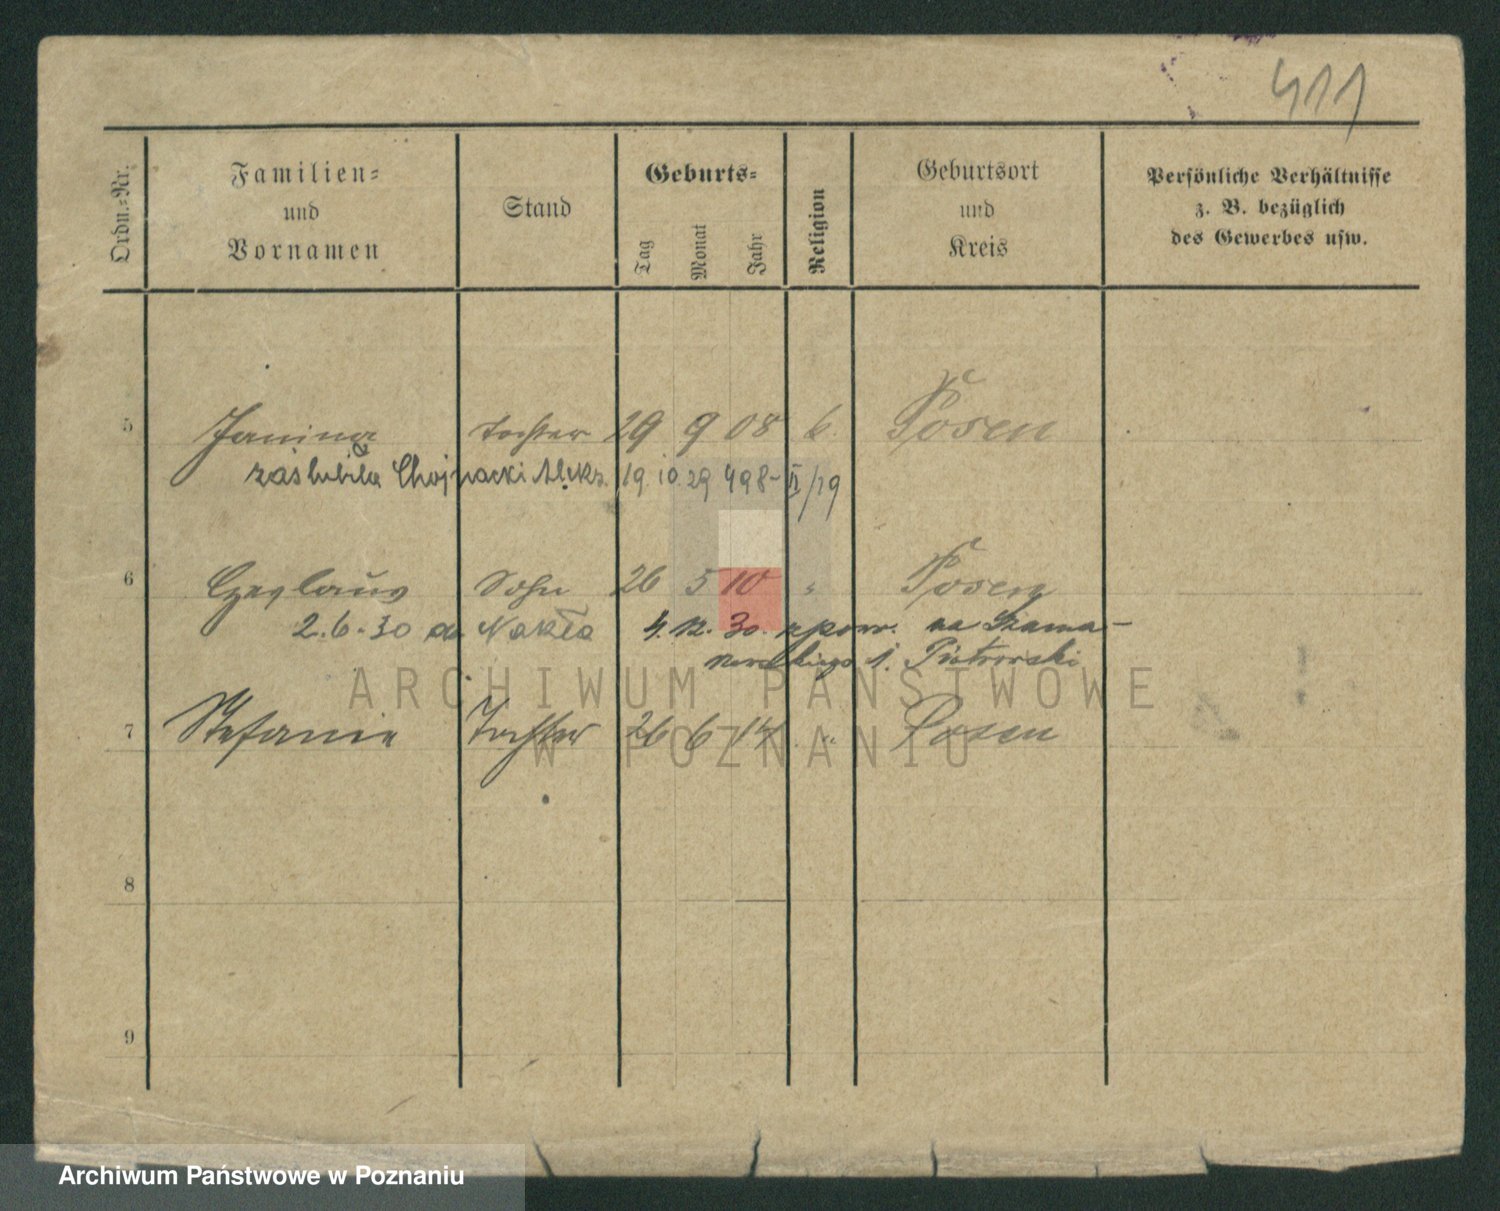 411
Ordn.-Nr.
Familien-
und
Vornamen
Stand
Geburts-
Tag
Monat
Jahr
Religion
Geburtsort
und
Kreis
Persönliche Verhältnisse
z. B. bezüglich
des Gewerbes usw.
5 Janina Tochter 29 9 08 k. Posen
zaślubiła Chojnacki Aleks. 19. 10. 29 498- II/29
6 Czeslaus Sohn 26 5 10 " Posen
2.6.30 do Nakła 4. 12. 30. zpow. na Szama-
rzewskiego 1. Piotrowski
7 Stefanie Tochter 26 6 14 " Posen
8
9
ARCHIWUM PAŃSTWOWE
W POZNANIU
Archiwum Państwowe w Poznaniu